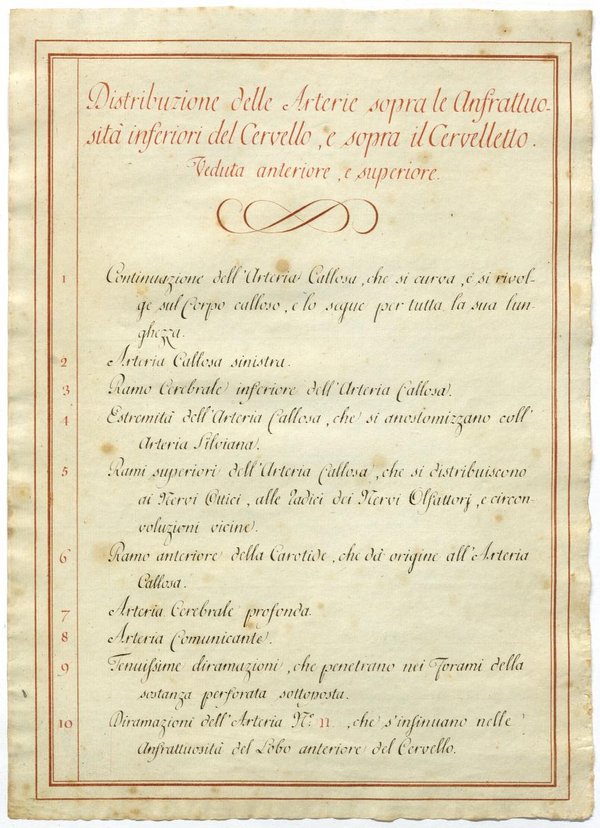 Distribuzione delle Arterie sopra le Anfrattuo-
sità inferiori del Cervello, e sopra il Cervelletto.
Veduta anteriore, e superiore.
1 Continuazione dell'Arteria Callosa, che si curva, e si rivol-
ge sul Corpo calloso, e lo segue per tutta la sua lun-
ghezza.
2 Arteria Callosa sinistra.
3 Ramo Cerebrale inferiore dell'Arteria Callosa.
4 Estremità dell'Arteria Callosa, che si anostomizzano coll'
Arteria Silviana.
5 Rami superiori dell'Arteria Callosa, che si distribuiscono
ai Nervi Ottici, alle radici dei Nervi Olfattorj, e circon-
voluzioni vicine.
6 Ramo anteriore della Carotide, che dà origine all'Arteria
Callosa.
7 Arteria Cerebrale profonda.
8 Arteria Comunicante.
9 Tenuissime diramazioni, che penetrano nei Forami della
sostanza perforata sottoposta.
10 Diramazioni dell'Arteria N.º 11, che s'insinuano nelle
Anfrattuosità del Lobo anteriore del Cervello.